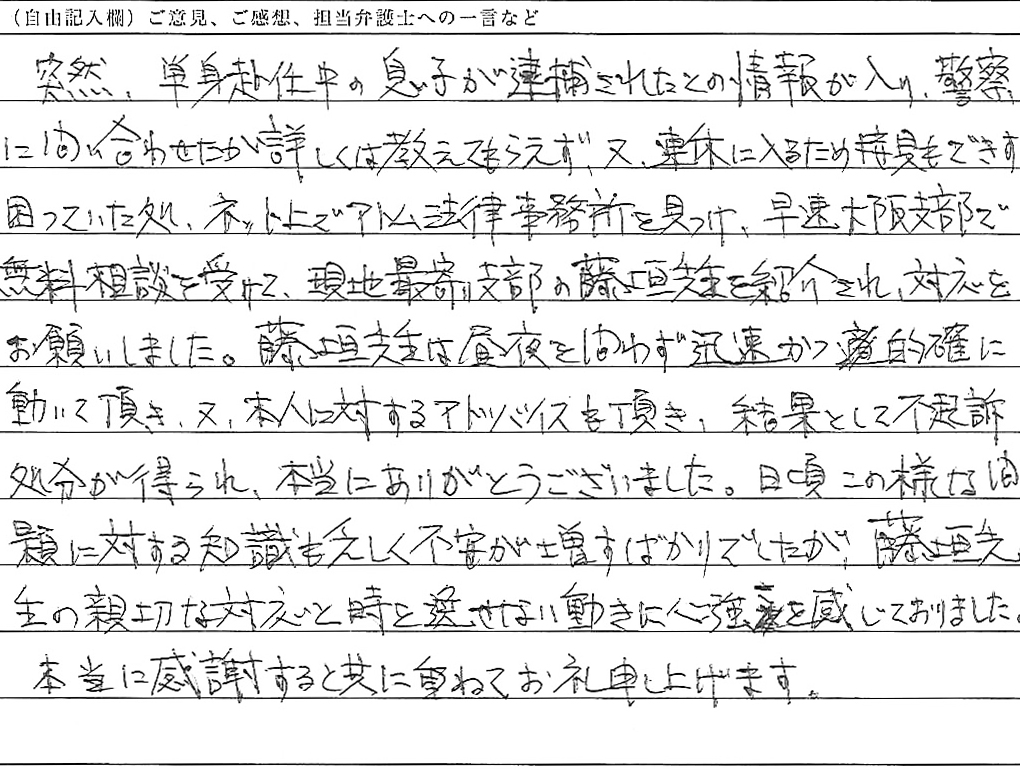 (自由記入欄)ご意見、ご感想、担当弁護士への一言など
突然、単身赴任中の息子が逮捕されたとの情報が入り、警察
に問い合わせたが詳しくは教えてもらえず、又、連休に入るため接見もできず
困っていた処、ネット上でアトム法律事務所を見つけ、早速大阪支部で
無料相談を受けて、現地最寄り支部の藤垣先生を紹介され、対応を
お願いしました。藤垣先生は昼夜を問わず迅速かつ適的確に
動いて頂き、又、本人に対するアドバイスも頂き、結果として不起訴
処分が得られ、本当にありがとうございました。日頃この様な問
題に対する知識も乏しく不安が増すばかりでしたが、藤垣先
生の親切な対応と時を逃せない動きに心強さを感じておりました。
本当に感謝すると共に重ねてお礼申し上げます。